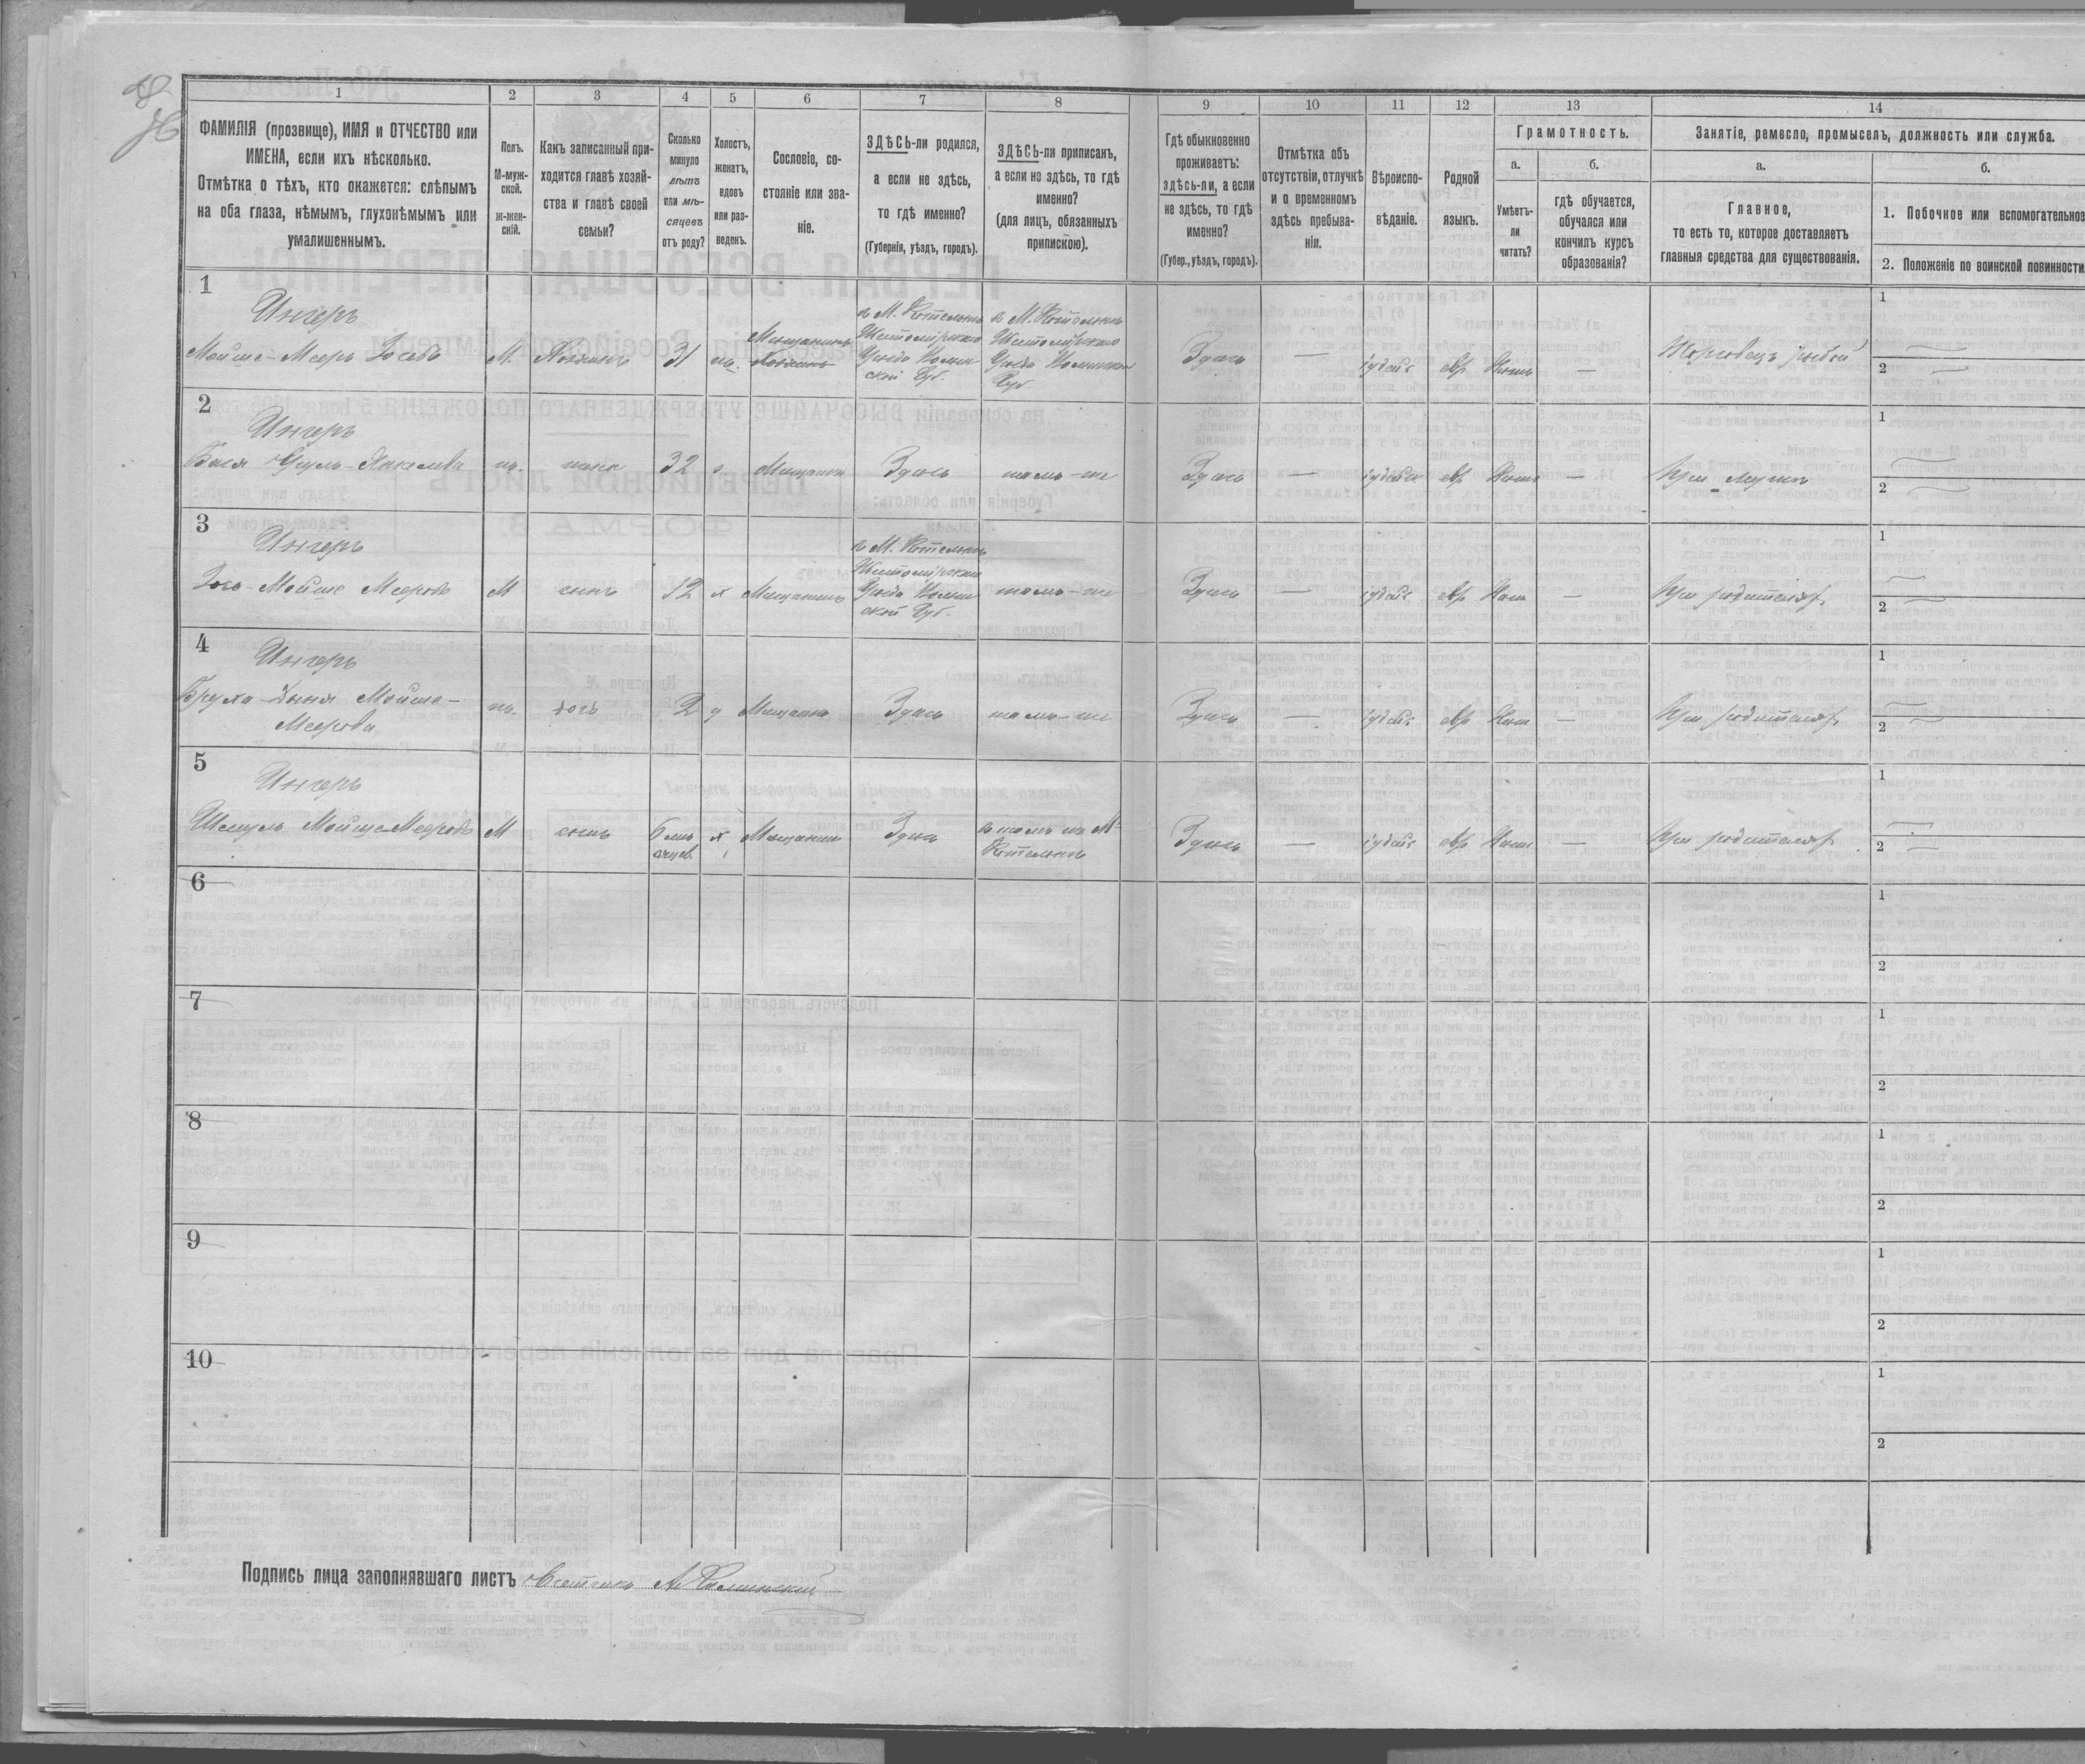 1
2
3
4
5
6
7
8
9
10
11
12
13
14
ФАМИЛІЯ (прозвище), ИМЯ и ОТЧЕСТВО или
ИМЕНА, если ихъ нѣсколько.
Отмѣтка о тѣхъ, кто окажется: слѣпымъ
на оба глаза, нѣмымъ, глухонѣмымъ или
умалишеннымъ.
Полъ.
М-муж-
ской.
ж-жен-
скій.
Какъ записанный при-
ходится главѣ хозяй-
ства и главѣ своей
семьи?
Сколько
минуло
лѣтъ
или мѣ-
сяцевъ
отъ роду?
Холостъ,
женатъ,
вдовъ
или раз-
веденъ.
Сословіе, со-
стояніе или зва-
ніе.
ЗДѢСЬ-ли родился,
а если не здѣсь,
то гдѣ именно?
(Губернія, уѣздъ, городъ).
ЗДѢСЬ-ли приписанъ,
а если не здѣсь, то гдѣ
именно?
(для лицъ, обязанныхъ
припискою).
Гдѣ обыкновенно
проживаетъ:
здѣсь-ли, а если
не здѣсь, то гдѣ
именно?
(Губер., уѣздъ, городъ).
Отмѣтка объ
отсутствіи, отлучкѣ
и о временномъ
здѣсь пребыва-
ніи.
Вѣроиспо-
вѣданіе.
Родной
языкъ.
Грамотность.
а.
Умѣетъ-
ли
читать?
б.
гдѣ обучается,
обучался или
кончилъ курсъ
образованія?
Занятіе, ремесло, промыселъ, должность или служба.
а.
Главное,
то есть то, которое доставляетъ
главныя средства для существованія.
б.
1. Побочное или вспомогательное
2. Положеніе по воинской повинности
1
Унгеръ
Мойше-Мееръ Іосевъ
М. Хозяинъ 31 ж. Мещанинъ
в М. Котельнѣ
Житомірскаго
Уѣзда Волын
ской Губ.
в М. Котельнѣ
Житомірскаго
Уѣзда Волынской
Губ
Здѣсь — іудейс евр — Торговецъ рыбой
1
2
2
Унгеръ
Бася -Янкелева ж. жена 32 з. Мещанка Здѣсь тамъ-же
Здѣсь — іудейс евр — При мужѣ
1
2
3
Унгеръ
Мойше Мееровъ М сынъ 12 х Мещанинъ
в М. Котельнѣ
Житомірскаго
Уѣзда Волын
ской Губ.
тамъ-же
Здѣсь — іудейс евр — При родителяхъ
1
2
4
Унгеръ
Бруха- Мойше-
Меерова
ж. дочь 2 д Мещанка Здѣсь тамъ-же
Здѣсь — іудейс евр — При родителяхъ
1
2
5
Унгеръ
Шмуль Мойше-Мееровъ М сынъ 6 мѣ
сяцев. х Мещанин Здѣсь
Котельнѣ
Здѣсь — іудейс евр — При родителяхъ
1
2
6
1
2
7
1
2
8
1
2
9
1
2
10
1
2
Подпись лица заполнявшаго листъ